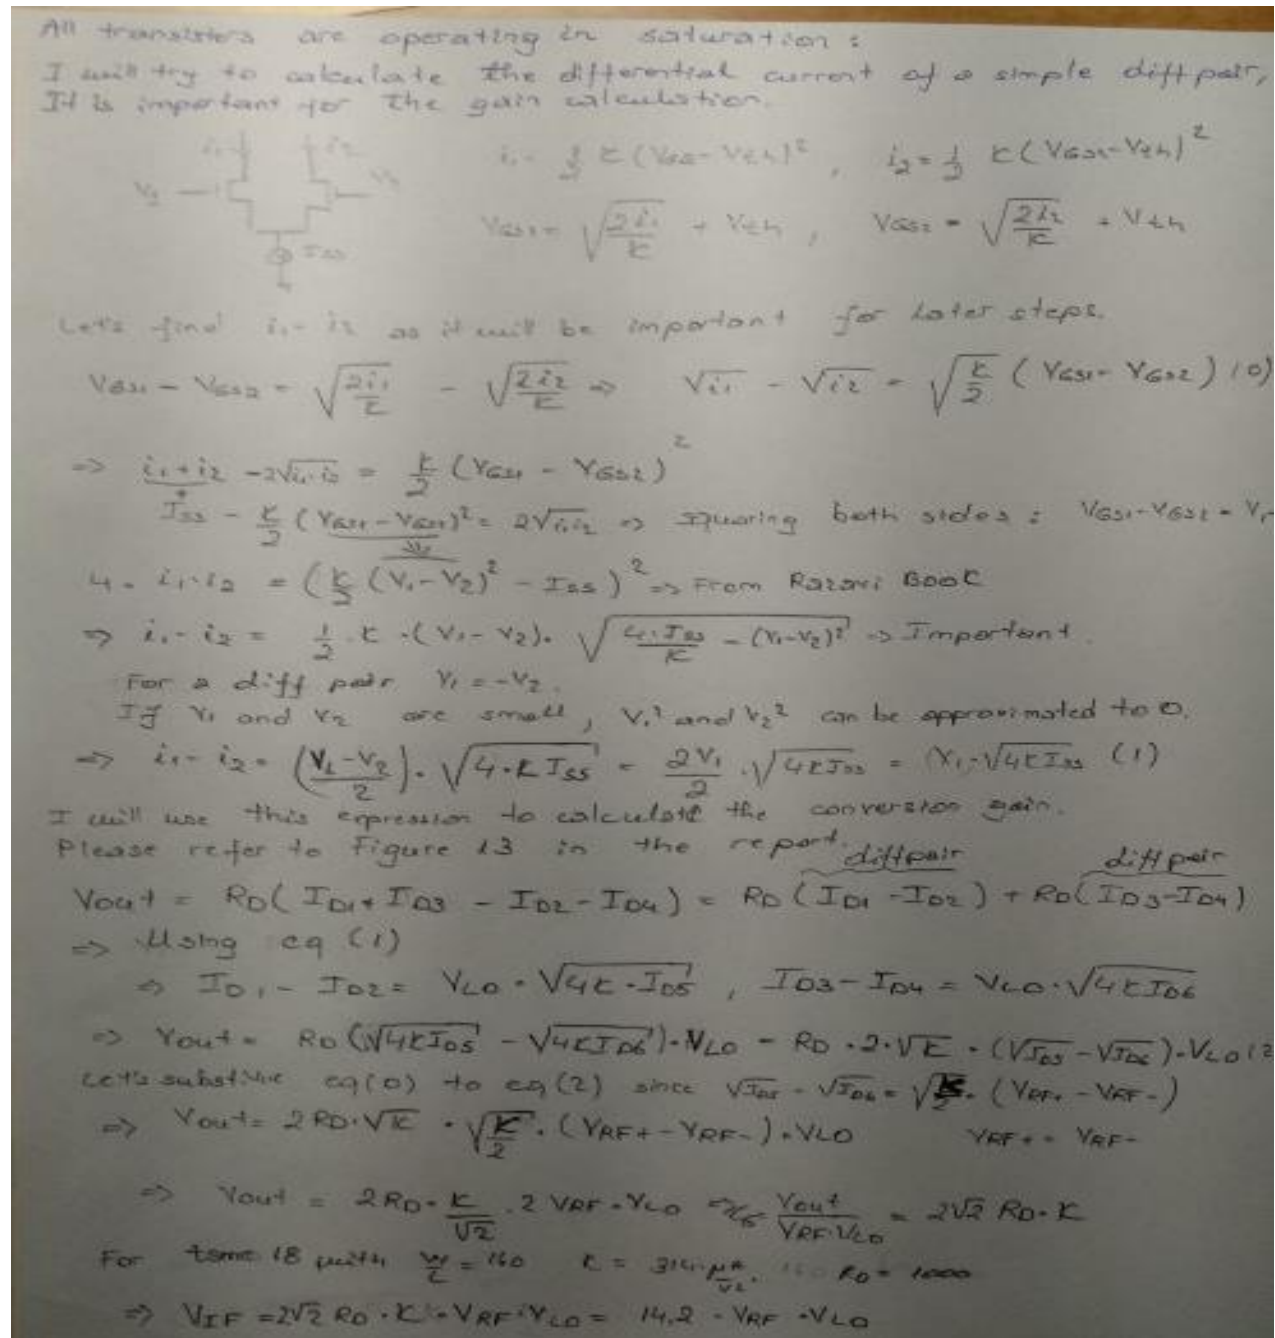 All transistors are operating in saturation :
I will try to calculate the differential current of a simple diff pair,
It is important for the gain calculation.
i₁ i₂ i₁ = 1/2 K (VGS1 - Vth)² , i₂ = 1/2 K (VGS2 - Vth)²
V₁ V₂ VGS1 = √(2i₁/K) + Vth , VGS2 = √(2i₂/K) + Vth
ISS
Let's find i₁ - i₂ as it will be important for later steps.
VGS1 - VGS2 = √(2i₁/K) - √(2i₂/K) => √i₁ - √i₂ = √(K/2) (VGS1 - VGS2) (0)
=> i₁ + i₂ - 2√(i₁·i₂) = K/2 (VGS1 - VGS2)²
ISS - K/2 (VGS1 - VGS2)² = 2√(i₁i₂) => squaring both sides : VGS1 - VGS2 = V₁-
4 · i₁·i₂ = (K/2 (V₁ - V₂)² - ISS)² => From Razavi Book
=> i₁ - i₂ = 1/2 · K · (V₁ - V₂) · √(4·ISS/K - (V₁-V₂)²) => Important.
For a diff pair V₁ = -V₂.
If V₁ and V₂ are small, V₁² and V₂² can be approximated to 0.
=> i₁ - i₂ = (V₁ - V₂)/2 · √(4·K ISS) = 2V₁/2 · √(4KISS) = V₁·√(4KISS) (1)
I will use this expression to calculate the conversion gain.
Please refer to Figure 13 in the report.
diffpair diffpair
Vout = RD( ID1 + ID3 - ID2 - ID4) = RD (ID1 - ID2) + RD(ID3 - ID4)
=> Using eq (1)
=> ID1 - ID2 = VLO · √(4K·ID5) , ID3 - ID4 = VLO · √(4KID6)
=> Vout = RD (√(4KID5) - √(4KID6)) · VLO = RD · 2 · √K · (√ID5 - √ID6) · VLO (2
Let's substitue eq(0) to eq(2) since √ID5 - √ID6 = √(K/2) · (VRF+ - VRF-)
=> Vout = 2 RD · √K · √(K/2) · (VRF+ - VRF-) · VLO VRF+ = VRF-
=> Vout = 2RD · K/√2 · 2 VRF · VLO => Vout/(VRF·VLO) = 2√2 RD · K
For tsmc 18 with W/L = 160 K = 314·µA/V² · 160 RD = 1000
=> VIF = 2√2 RD · K · VRF·VLO = 14,2 · VRF · VLO